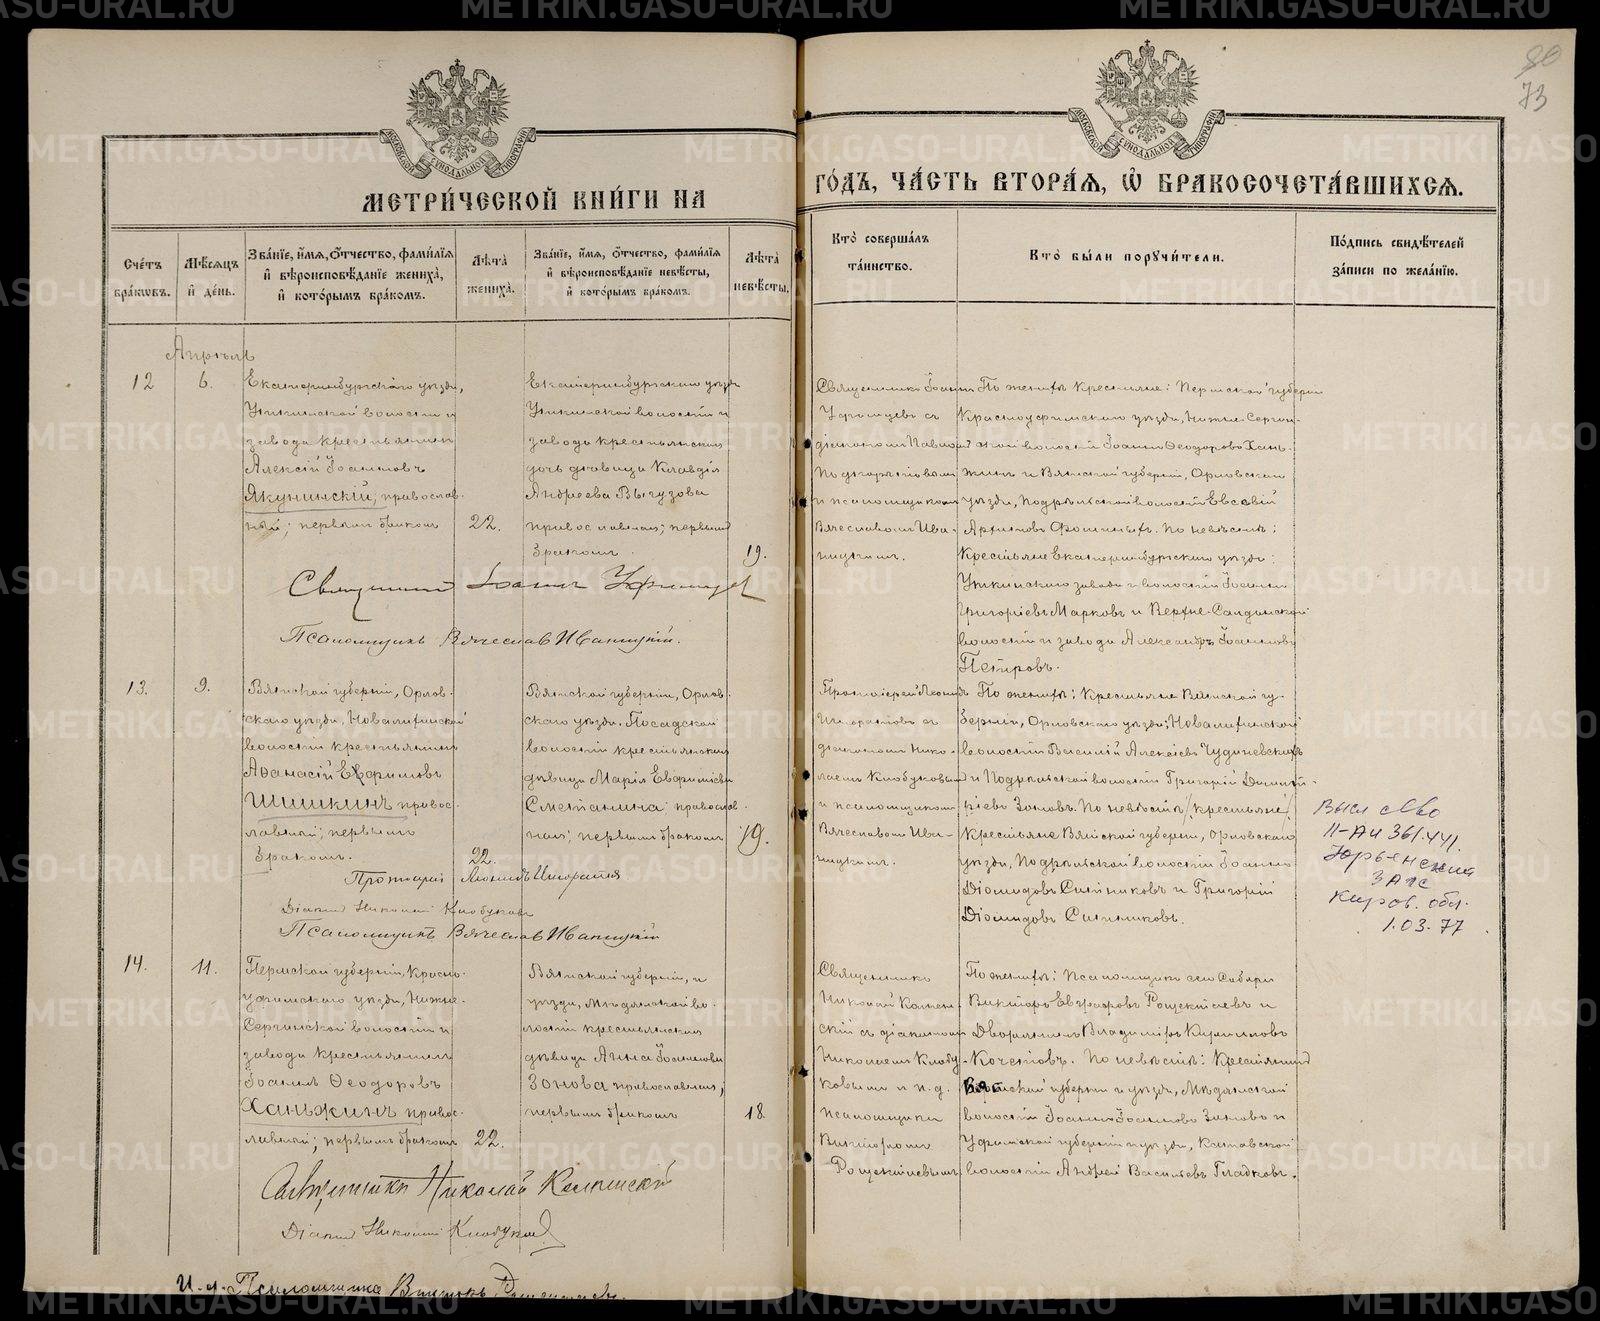 МЕТРИ́ЧЕСКОЙ КНИ́ГИ НА
ГО́ДЪ, ЧА́СТЬ ВТОРА́Я, Ѡ БРАКОСОЧЕТА́ВШИХСЯ.
90
73
Сче́тъ бра́кѡвъ.
Мѣ́сяцъ и́ де́нь.
Зва́нїе, и́мя, о́тчество, фами́лїя и҆ вѣроисповѣ́данїе жениха̀, и҆ кото́рымъ бра́комъ.
Лѣта̀ жениха̀.
Зва́нїе, и́мя, о́тчество, фами́лїя и҆ вѣроисповѣ́данїе невѣ́сты, и҆ кото́рымъ бра́комъ.
Лѣта̀ невѣ́сты.
Кто̀ соверша́лъ та́инство.
Кто̀ бы́ли поручи́тели.
По́дпись свидѣ́телей за́писи по жела́нїю.
Апрѣль
12
6.
Екатеринбургскаго уѣзда,
Уткинской волости и
завода крестьянинъ
Алексій Іоанновъ
Якунинскій, православ-
ный; первымъ бракомъ
22.
Екатеринбургскаго уѣзда
Уткинской волости и
завода крестьянская
дочь дѣвица Клавдія
Андреева Выгузова
православная; первымъ
бракомъ.
19.
Священникъ Іоаннъ
Уфимцевъ съ
діакономъ Павломъ
и псаломщикомъ
Вячеславомъ Ива-
ницкимъ.
По женихѣ крестьяне: Пермской губерніи
Красноуфимскаго уѣзда, Нижне-Сергин-
ской волости Іоаннъ Ѳеодоровъ Хань-
жинъ и Вятской губерніи, Орловскаго
уѣзда, Подрѣльской волости Евсевій
По невѣстѣ:
Крестьяне Екатеринбургскаго уѣзда:
Уткинскаго завода и волости Іоаннъ
Григоріевъ Марковъ и Верхне-Салдинской
волости и завода Александръ Іоанновъ
Петровъ.
Священникъ Іоаннъ Уфимцев
Псаломщикъ Вячеслав Иваницкій.
13.
9.
Вятской губерніи, Орлов-
скаго уѣзда,
волости крестьянинъ
Аѳанасій Евфимовъ
Шишкинъ правос-
лавный; первымъ
бракомъ.
22.
Вятской губерніи, Орлов-
скаго уѣзда, Посадской
волости крестьянская
дѣвица Марія Евфиміева
Сметанина православ-
ная; первымъ бракомъ
19.
Протоіерей Леонидъ
Игноратовъ съ
діакономъ Нико-
лаемъ Клобуковымъ
и псаломщикомъ
Вячеславомъ Ива-
ницкимъ.
По женихѣ: крестьяне Вятской гу-
берніи, Орловскаго уѣзда;
волости Василій Алексіевъ Чудиневскихъ
и Подрѣльской волости Григорій Димит-
ріевъ Зоновъ. По невѣстѣ (крестьяне)
Крестьяне Вятской губерніи, Орловскаго
уѣзда, Подрѣльской волости Іоаннъ
Діомидовъ Ситниковъ и Григорій
Діомидовъ Ситниковъ.
Высл св-во
II-АИ 361441
Юрьенский
ЗАГС
Киров. обл.
1.03.77
Протоіерей Леонидъ
Діаконъ Николай Клобуковъ
Псаломщикъ Вячеслав Иваницкій
14.
11.
Пермской губерніи, Красно-
уфимскаго уѣзда, Нижне-
Сергинской волости и
завода крестьянинъ
Іоаннъ Ѳеодоровъ
Ханьжинъ правос-
лавный; первымъ бракомъ
22.
Вятской губерніи, и
уѣзда, Мѣдянской во-
лости крестьянская
дѣвица Анна Іоаннова
Зонова православная,
первымъ бракомъ
18.
Священникъ
Николай Каменс-
скій съ діакономъ
Николаемъ Клобу-
ковымъ и и.д.
псаломщика
Викторомъ
По женихѣ: псаломщикъ
Викторъ Евграфовъ
Дворянинъ Владиміръ Кирилловъ
Кочетовъ. По невѣстѣ: Крестьянинъ
Вятской губерніи и уѣзда, Мѣдянской
волости Іоаннъ Іоанновъ Зоновъ и
Уфимской губерніи и уѣзда, Катавской
волости Андрей Васильевъ Гладковъ.
Священникъ Николай Каменскій
Діаконъ Николай Клобуковъ
И. д. Псаломщика Викторъ
METRIKI.GASO-URAL.RU